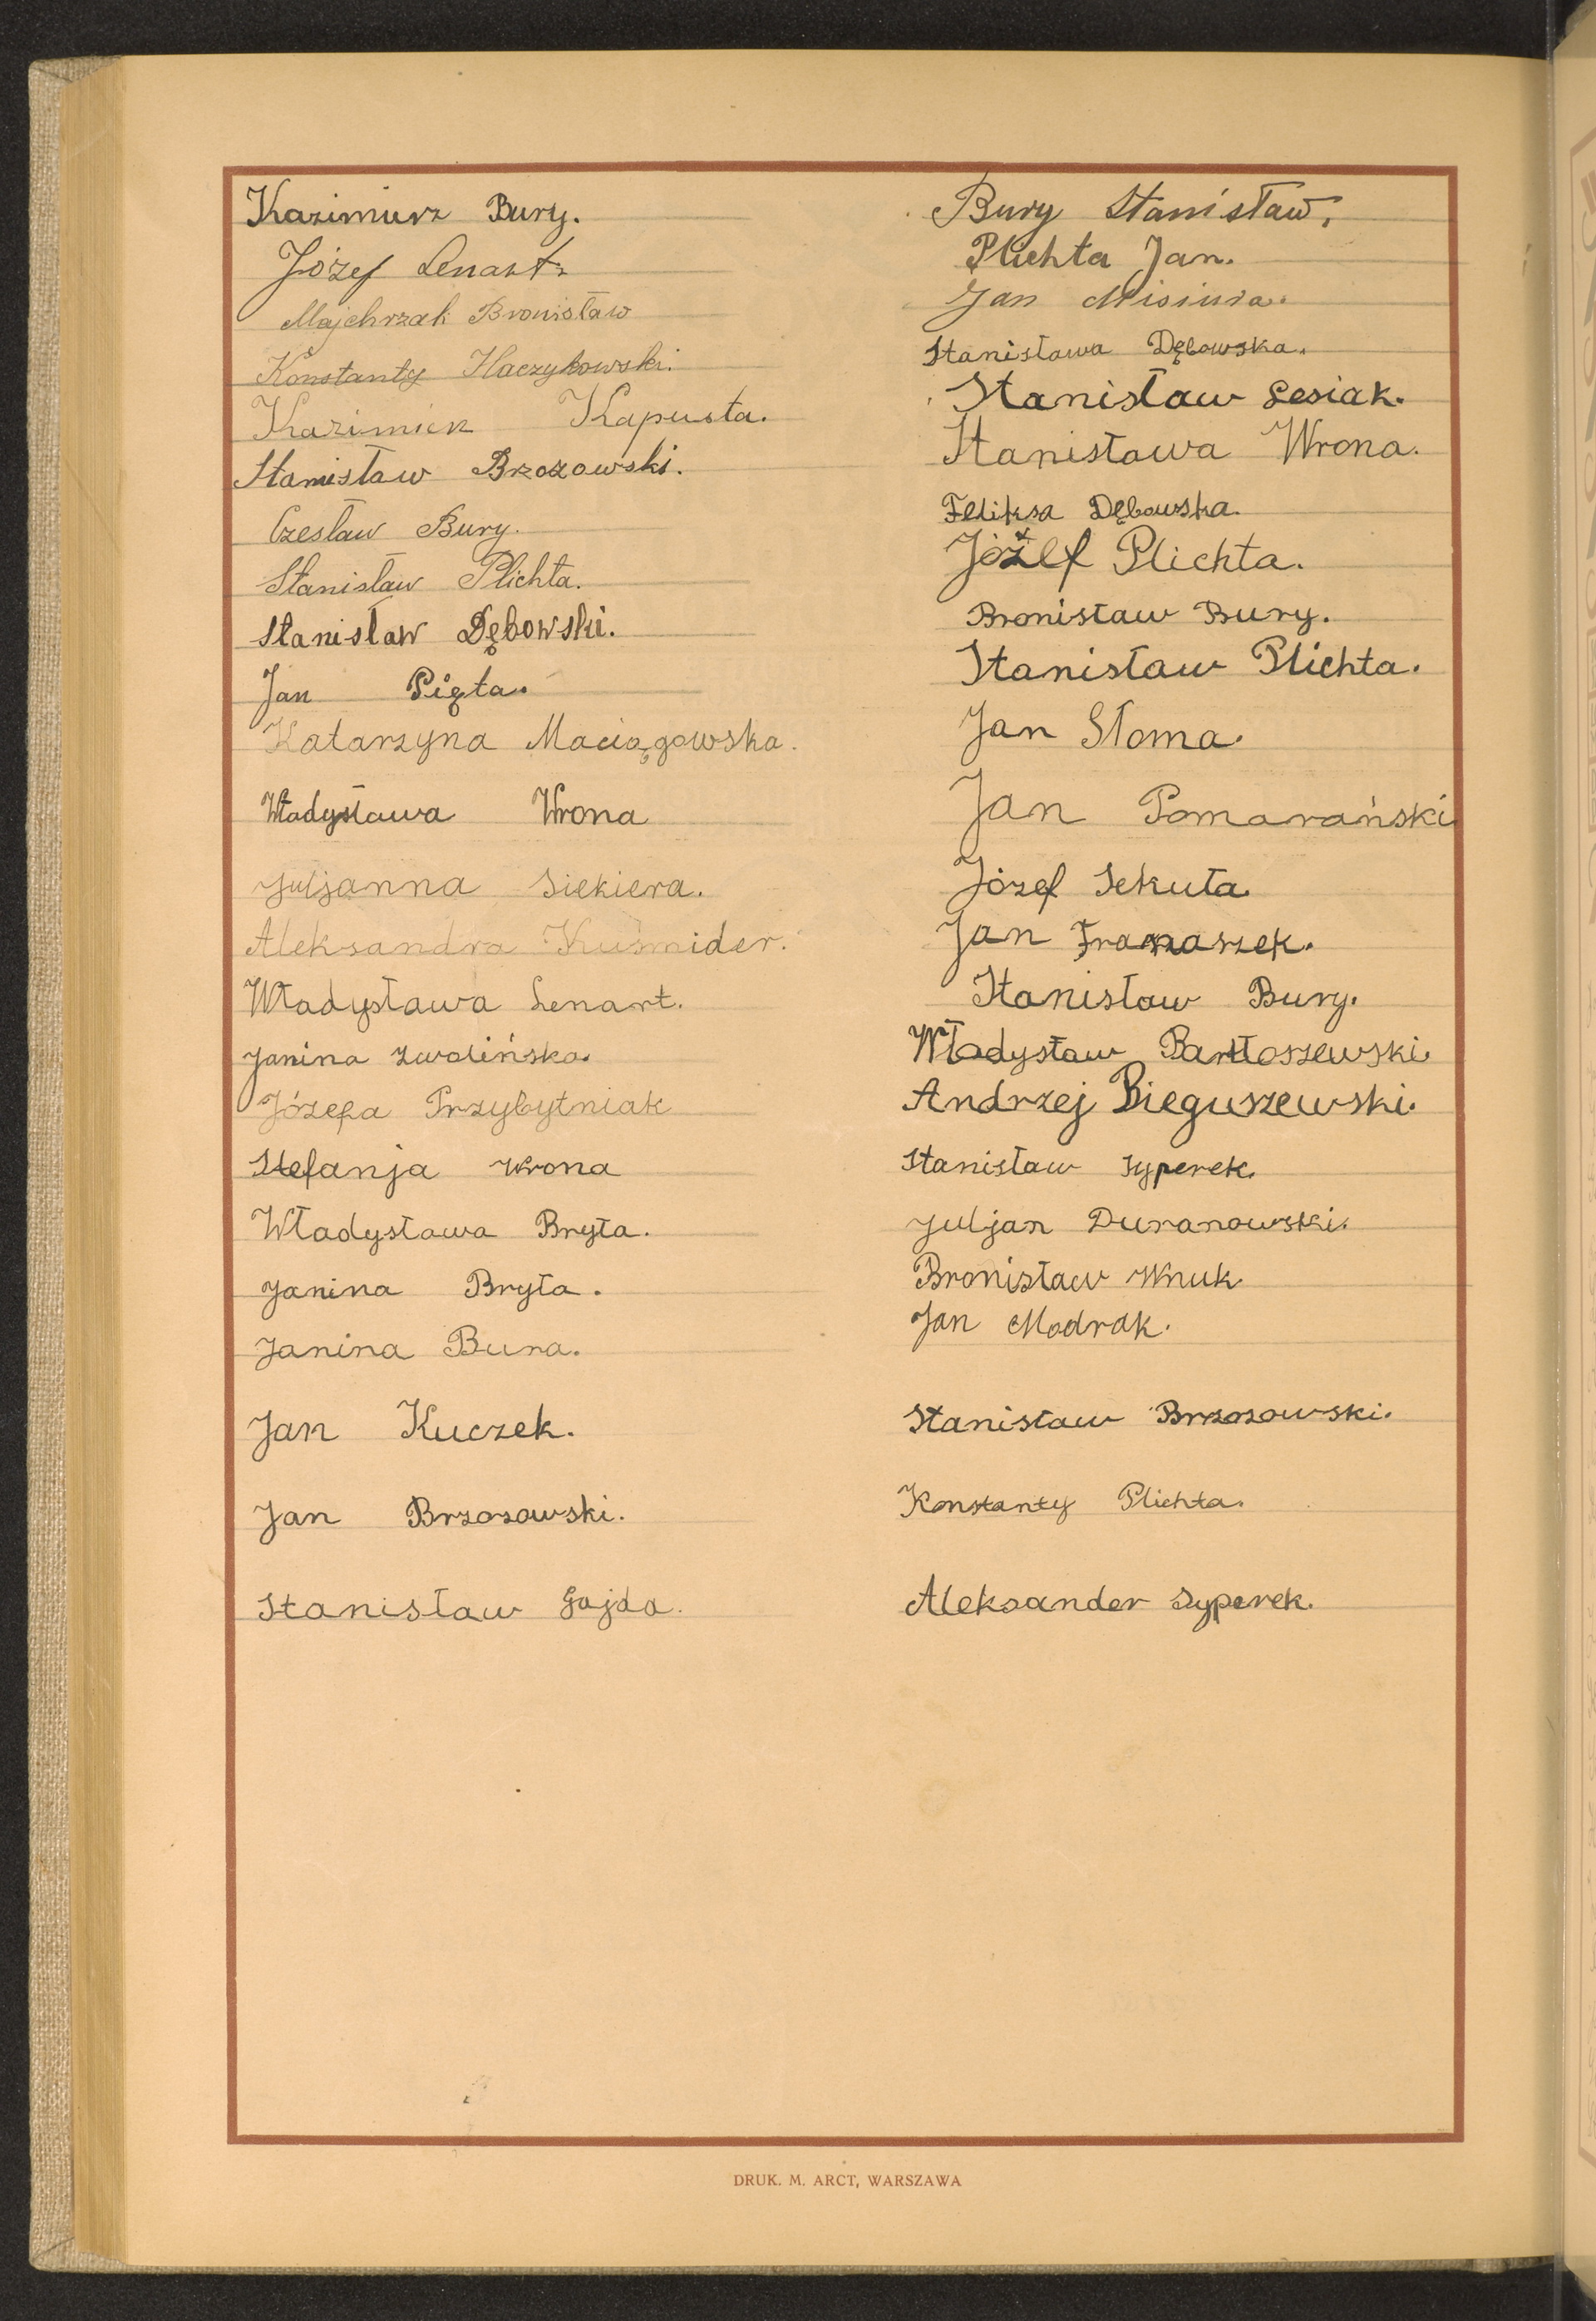 Kazimierz Bury.
Józef Lenart.
Majchrzak Bronisław
Konstanty Haczykowski.
Kazimierz Kapusta.
Stanisław Brzozowski.
Czesław Bury.
Stanisław Plichta.
Stanisław Dębowski.
Jan Pięta.
Katarzyna Maciągowska.
Władysława Wrona
Juljanna Siekiera.
Aleksandra Kuśmider.
Władysława Lenart.
Janina Zwolińska.
Józefa Przybytniak
Stefanja Wrona
Władysława Bryła.
Janina Bryła.
Janina Bura.
Jan Kuczek.
Jan Brzozowski.
Stanisław Gajda.
Bury Stanisław,
Plichta Jan.
Jan Misiura.
Stanisława Dębowska.
Stanisław Lesiak.
Stanisława Wrona.
Feliksa Dębowska.
Józef Plichta.
Bronisław Bury.
Stanisław Plichta.
Jan Słoma.
Jan Pomarański
Józef Sekuła.
Jan Franaszek.
Stanisław Bury.
Władysław Bartoszewski.
Andrzej Bieguszewski.
Stanisław Syperek.
Juljan Duranowski.
Bronisław Wnuk.
Jan Modrak.
Stanisław Brzozowski.
Konstanty Plichta.
Aleksander Syperek.
DRUK. M. ARCT, WARSZAWA